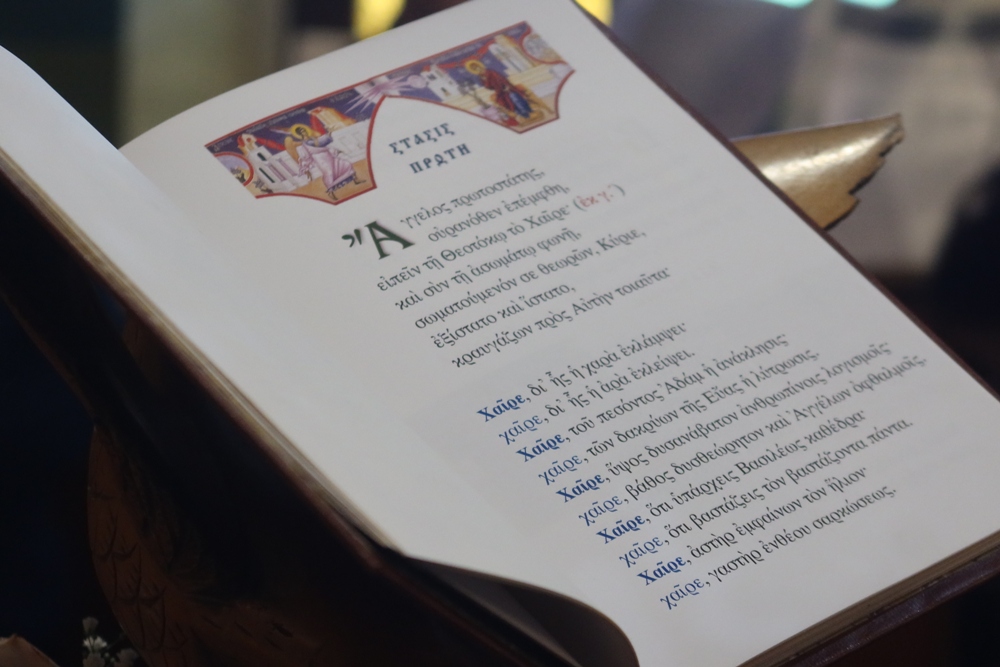 ΣΤΑΣΙΣ
ΠΡΩΤΗ
Ἄγγελος πρωτοστάτης,
οὐρανόθεν ἐπέμφθη,
εἰπεῖν τῇ Θεοτόκῳ τὸ Χαῖρε· (ἐκ γ΄)
καὶ σὺν τῇ ἀσωμάτῳ φωνῇ,
σωματούμενόν σε θεωρῶν, Κύριε,
ἐξίστατο καὶ ἵστατο,
κραυγάζων πρὸς Αὐτὴν τοιαῦτα·
Χαῖρε, δι᾽ ἧς ἡ χαρὰ ἐκλάμψει·
χαῖρε, δι᾽ ἧς ἡ ἀρὰ ἐκλείψει.
Χαῖρε, τοῦ πεσόντος Ἀδὰμ ἡ ἀνάκλησις·
χαῖρε, τῶν δακρύων τῆς Εὔας ἡ λύτρωσις.
Χαῖρε, ὕψος δυσανάβατον ἀνθρωπίνοις λογισμοῖς·
χαῖρε, βάθος δυσθεώρητον καὶ Ἀγγέλων ὀφθαλμοῖς.
Χαῖρε, ὅτι ὑπάρχεις Βασιλέως καθέδρα·
χαῖρε, ὅτι βαστάζεις τὸν βαστάζοντα πάντα.
Χαῖρε, ἀστὴρ ἐμφαίνων τὸν ἥλιον·
χαῖρε, γαστὴρ ἐνθέου σαρκώσεως.